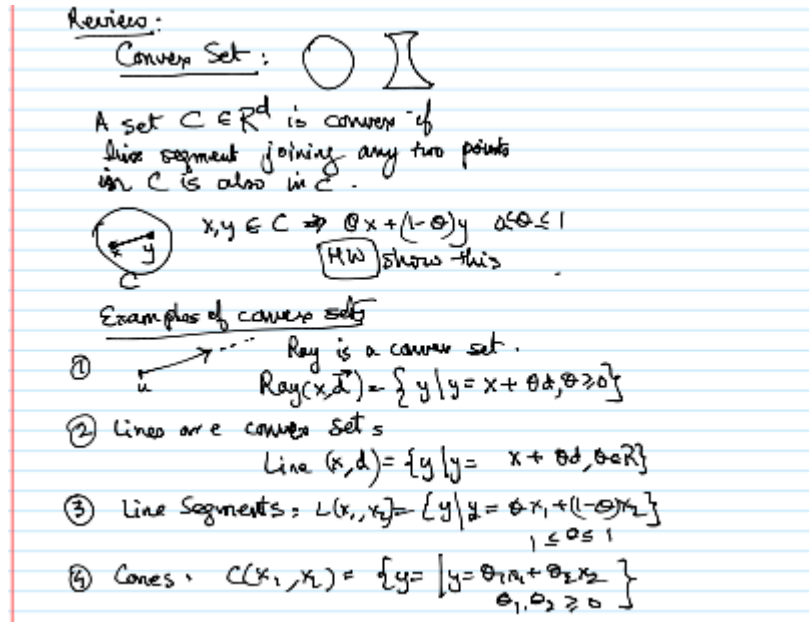 Review:
Convex Set:
A set C ∈ R^d is convex if
line segment joining any two points
in C is also in C.
x, y ∈ C ⇒ θx + (1-θ)y 0≤θ≤1
x y
HW show this
C
Examples of convex sets
① Ray is a convex set.
u
Ray(x, d⃗) = { y | y = x + θd, θ ≥ 0 }
② Lines are convex sets
Line (x, d) = { y | y = x + θd, θ∈R }
③ Line Segments: L(x₁, x₂) = { y | y = θx₁ + (1-θ)x₂ }
1 ≤ θ ≤ 1
④ Cones. C(x₁, x₂) = { y = | y = θ₁x₁ + θ₂x₂ }
θ₁, θ₂ ≥ 0